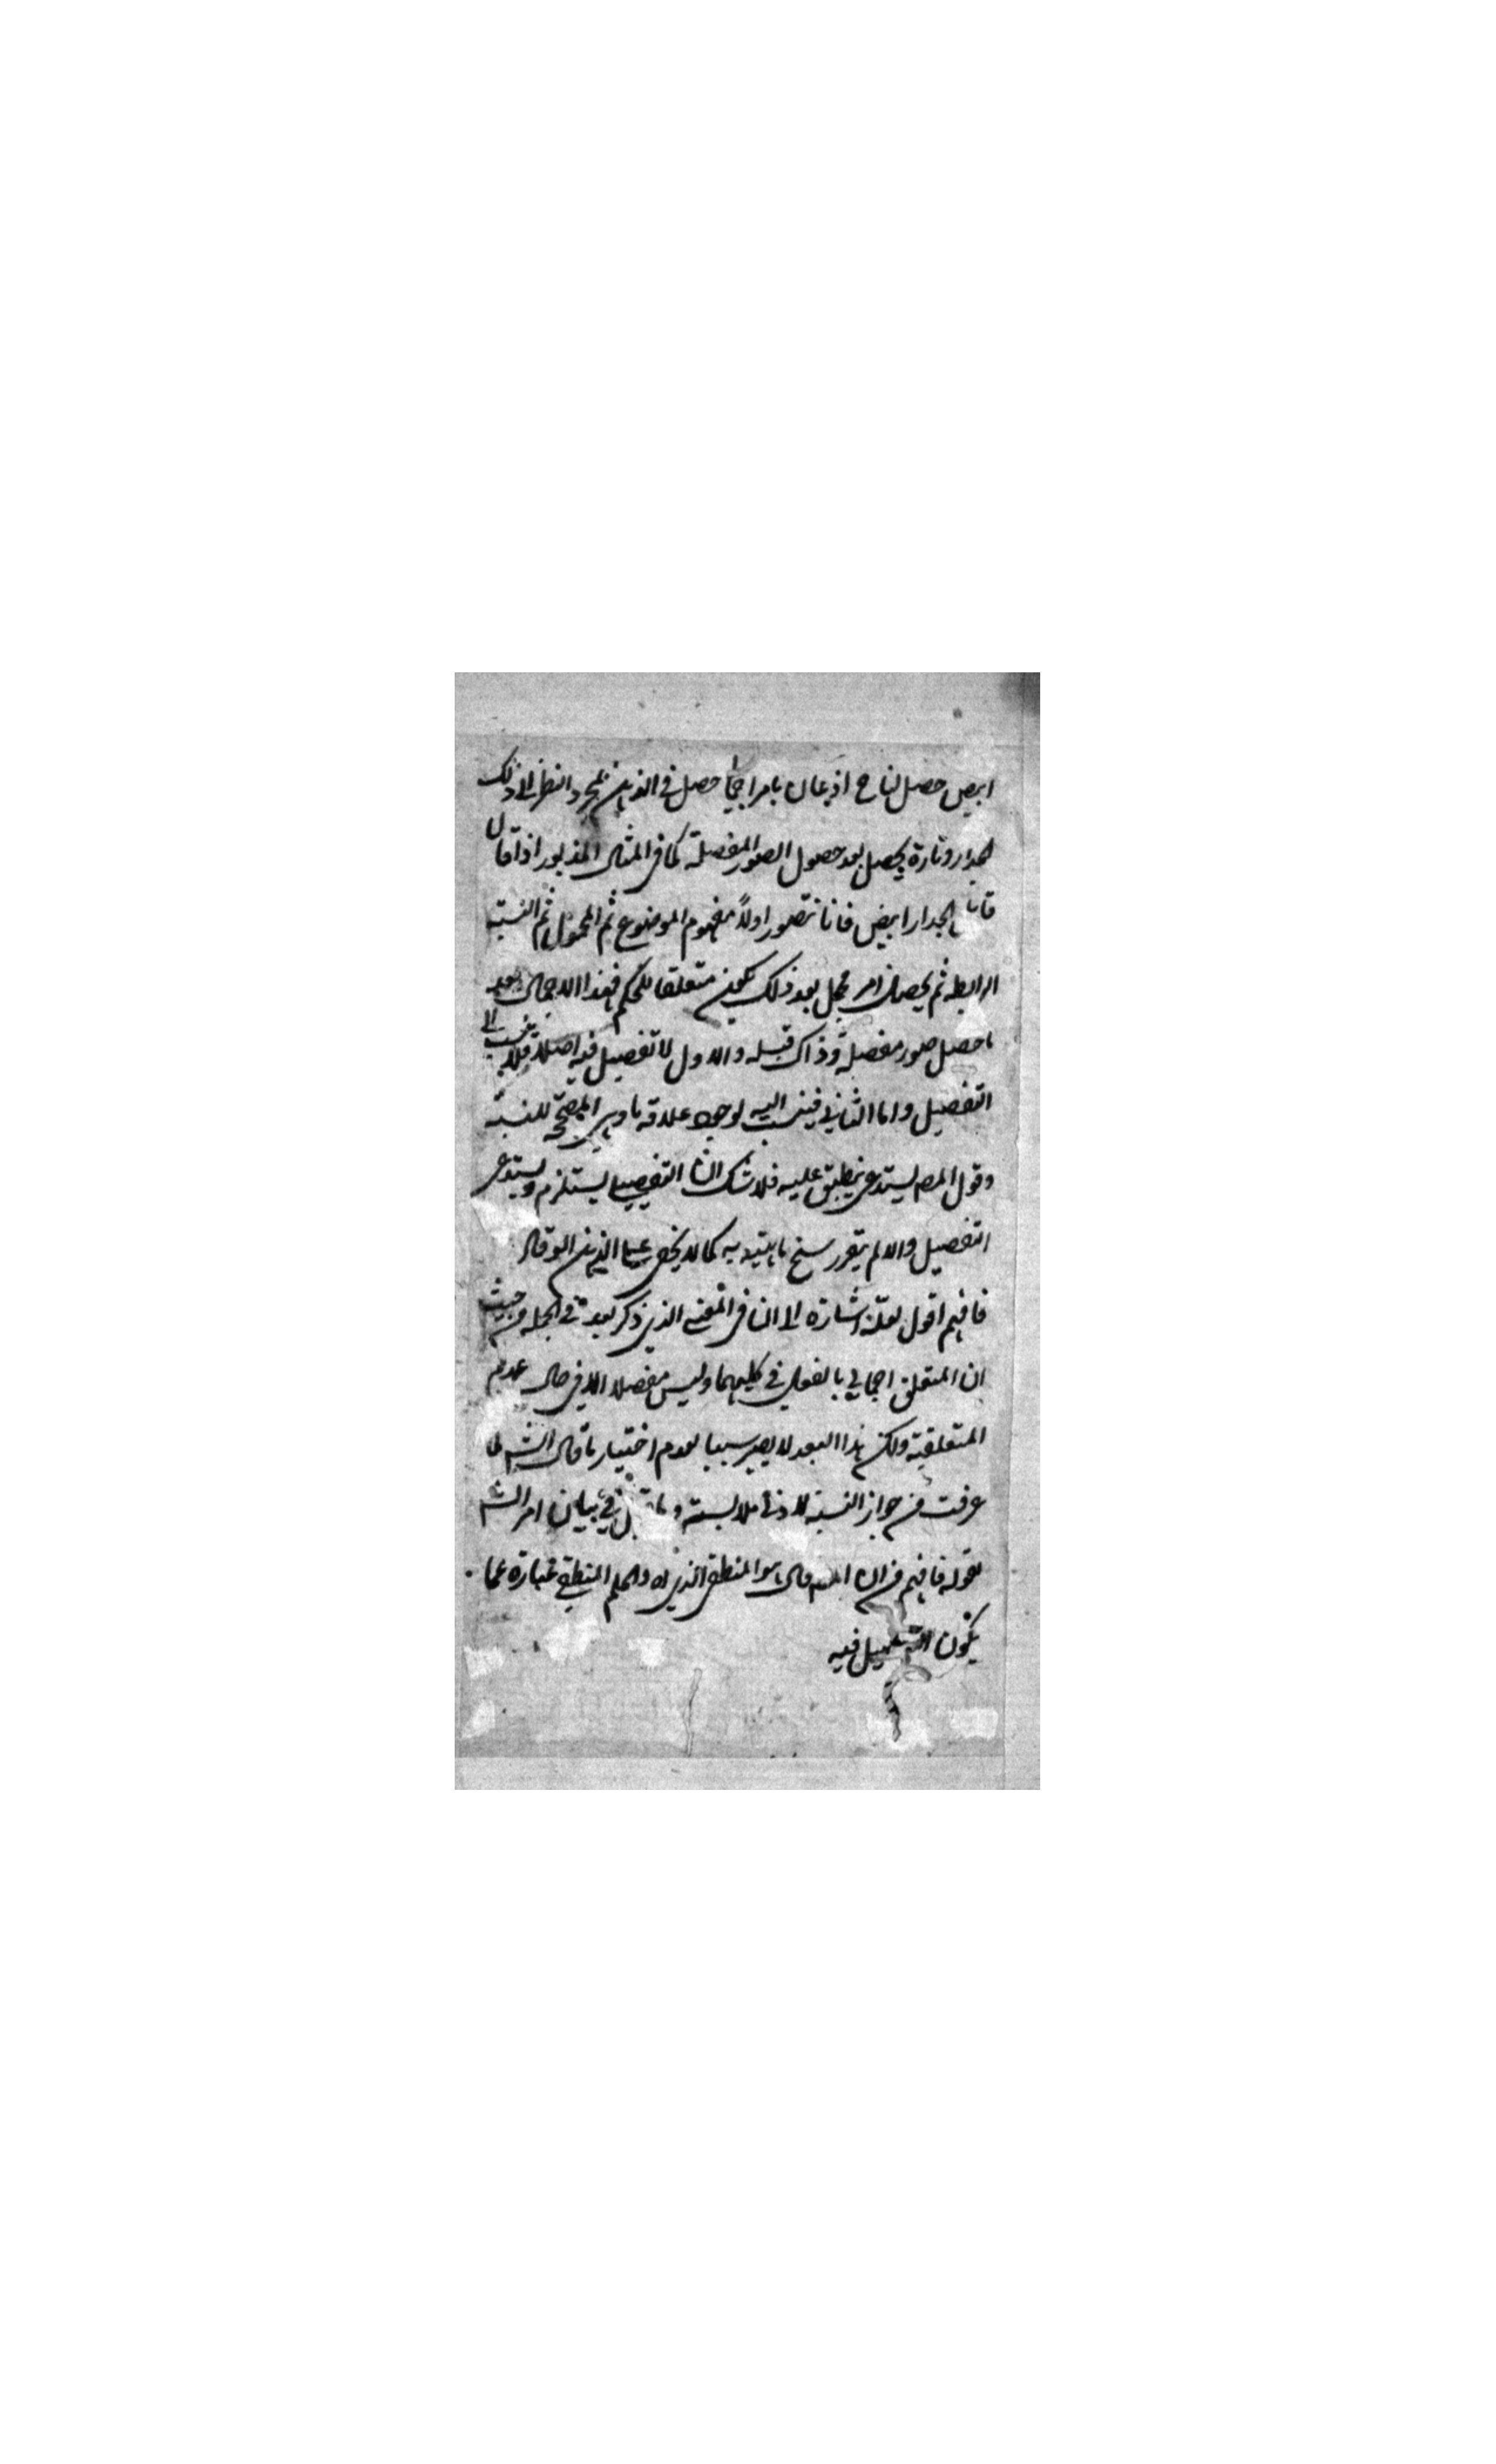 ابيض حصل لنا ح اذعان بامر اجمالي حصل في الذهن بمجرد النظر الا ذلك
الجدار وتارة يحصل بعد حصول الصور المفصلة كما في المثال المذكور اذا قال
قائل الجدار ابيض فانا نتصور اولاً مفهوم الموضوع ثم المحمول ثم النسبة
الرابطه ثم يحصل امر مجمل بعد ذلك يكون متعلقا للحكم فهذا الاجمال بعد
ما حصل صور مفصلة وذاك قبله والاول لا تفصيل فيه اصلا فلا ينسب الى
التفصيل واما الثاني فينسب اليه لوجود علاقة ما وهي المصححة للنسبة
وقول المص يستدعي ينطبق عليه فلا شك ان التفصيلي يستلزم ويستدعي
التفصيل والا لم يتقرر سنخ ماهيته به كما لا يخفى على الذهن الوقاد
فافهم اقول لعله اشارة الا المعنى الذي ذكر بعد في الجملة من حيث
ان المتعلق اجمالي بالفعل في كليهما وليس مفصلا الا في حال عدم
المتعلقية ولكن هذا البعد لا يصير سببا لعدم اختيار ما قال الشه لما
عرفت من جواز النسبة لادنى ملابسة وما قيل في بيان امر الشه
بقوله فافهم من ان المص قال هو المنطقي الذي والحكم المنطقي عبارة عما
يكون التفصيل فيه